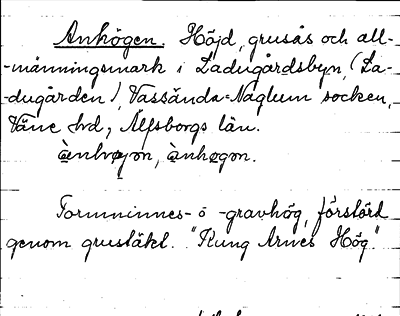 Anhögen. Höjd, grusås och all-
-männingsmark i Ladugårdsbyn, (La-
-dugården), Vassända-Naglum socken,
Väne hrd, Älfsborgs län.
ànhøgon, ànhøgon.
Fornminnes- o -gravhög, förstörd
genom grustäkt. "Kung Arnes Hög."